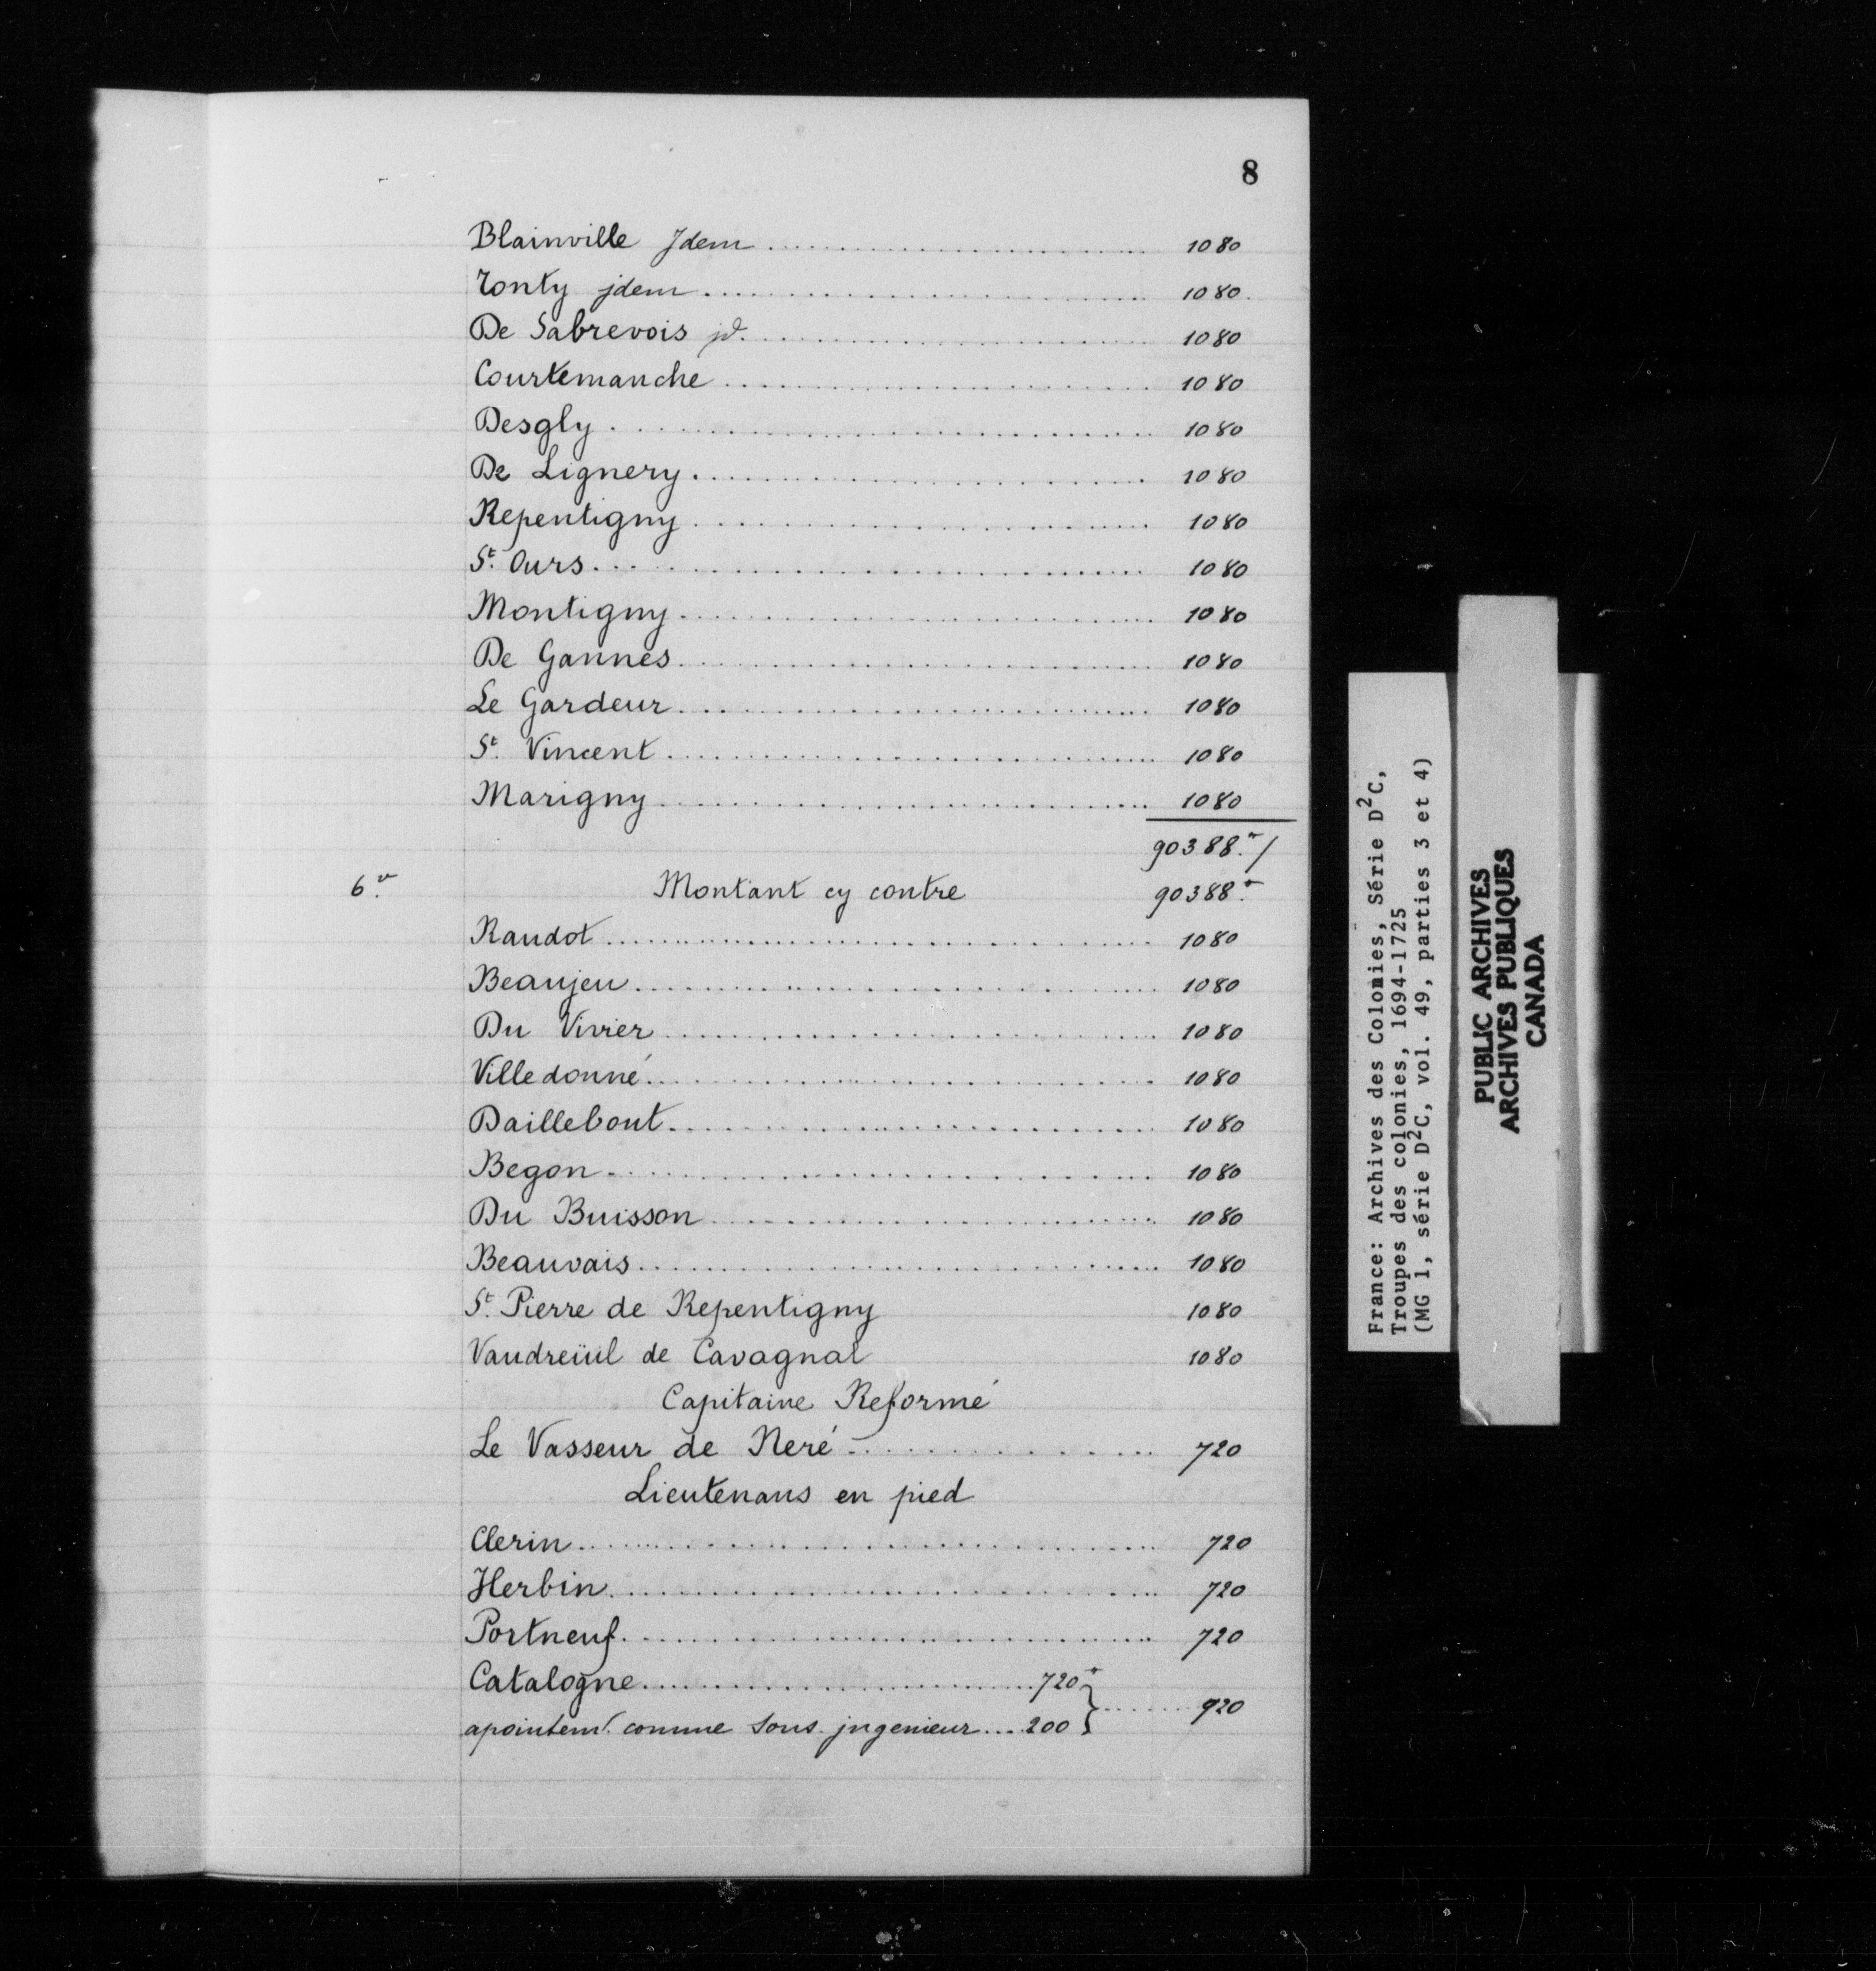 8
Blainville Jdem ........................ 1080
Tonty jdem ........................ 1080.
De Sabrevois jd. ........................ 1080
Courtemanche ........................ 1080
Desgly ........................ 1080
De Lignery ........................ 1080
Repentigny ........................ 1080
St. Ours ........................ 1080
Montigny ........................ 1080
De Gannes ........................ 1080
Le Gardeur ........................ 1080
St. Vincent ........................ 1080
Marigny ........................ 1080
90388.
6. Montant cy contre 90388.
Raudot ........................ 1080
Beaujeu ........................ 1080
Du Vivier ........................ 1080
Villedonné ........................ 1080
Daillebout ........................ 1080
Begon ........................ 1080
Du Buisson ........................ 1080
Beauvais ........................ 1080
St. Pierre de Repentigny 1080
Vaudreüil de Cavagnal 1080
Capitaine Reformé
Le Vasseur de Neré ........................ 720
Lieutenans en pied
Clerin ........................ 720
Herbin ........................ 720
Portneuf ........................ 720
Catalogne ........................ 720
apointemt. comme sous jngenieur .... 200 } ........ 920
France: Archives des Colonies, Série D²C,
Troupes des colonies, 1694-1725
(MG 1, série D²C, vol. 49, parties 3 et 4)
PUBLIC ARCHIVES
ARCHIVES PUBLIQUES
CANADA